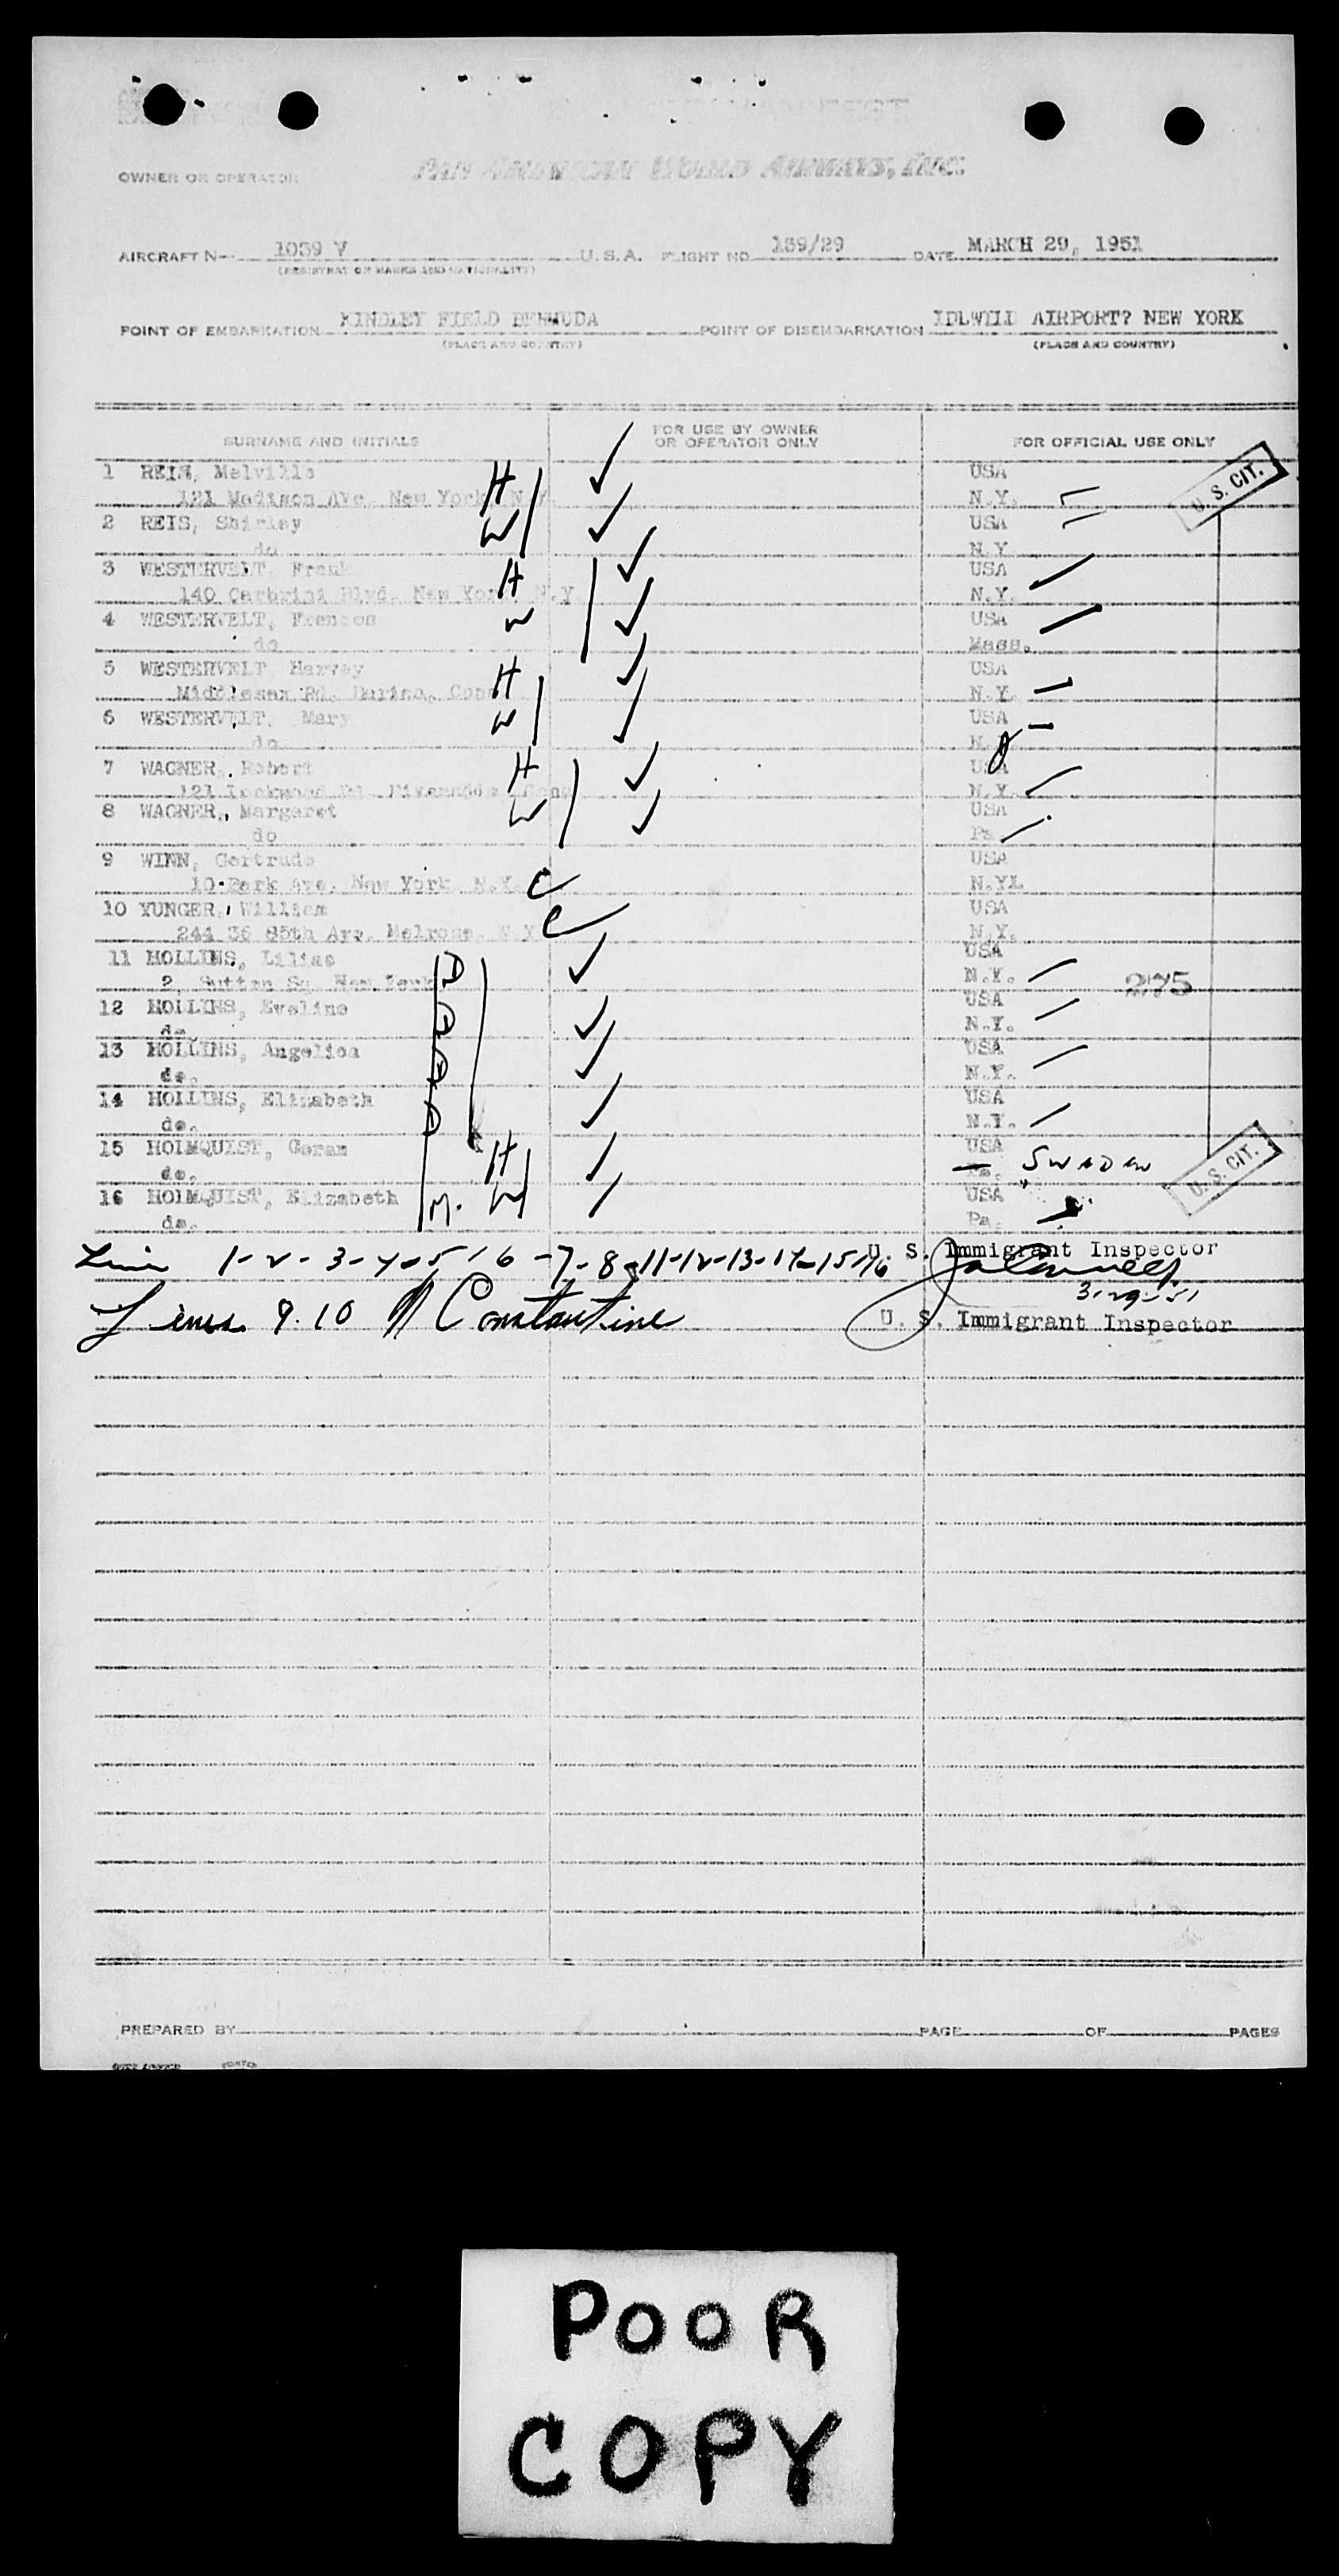 OWNER OR OPERATOR
PAN AMERICAN WORLD AIRWAYS, INC.
AIRCRAFT N- 1039 V U. S. A. FLIGHT NO 159/29 DATE MARCH 29, 1951
(REGISTRATION MARKS AND NATIONALITY)
POINT OF EMBARKATION KINDLEY FIELD BERMUDA POINT OF DISEMBARKATION IDLWILD AIRPORT? NEW YORK
(PLACE AND COUNTRY) (PLACE AND COUNTRY)
SURNAME AND INITIALS FOR USE BY OWNER OR OPERATOR ONLY FOR OFFICIAL USE ONLY
U. S. CIT.
1 REIS, Melville H USA
121 Madison Ave. New York, N.Y. N.Y.
2 REIS, Shirley W USA
do N.Y.
3 WESTERVELT, Frank H USA
140 Carbrini Blvd. New York, N.Y. N.Y.
4 WESTERVELT, Frances W USA
do Mass.
5 WESTERVELT Harvey H USA
Middlesex Rd. Conn. N.Y.
6 WESTERVELT, Mary W USA
do N.
7 WAGNER, Robert H USA
121 Lockwood Rd. Conn N.Y.
8 WAGNER, Margaret W USA
do Pa.
9 WINN, Gertrude USA
10 Park Ave. New York N.Y. C N.YL
10 YUNGER, William USA
244 36 85th Ave. Melrose, N.Y C N.Y.
11 HOLLINS, Lilias D USA
2, Sutton Sq. New York N.Y. 275
12 HOLLINS, Eveline D USA
do. N.Y.
13 HOLLINS, Angelica D USA
do. N.Y.
14 HOLLINS, Elizabeth D USA
do. N.Y.
15 HOLMQUIST, Goran H USA
do. Pa. SWEDEN
16 HOLMQUIST, Elizabeth M. W USA
do. Pa.
U. S. CIT.
Line 1-2-3-4-5-6-7-8-11-12-13-14-15-16 U. S. Immigrant Inspector
3-29-51
Lines 9.10 N Constantine U. S. Immigrant Inspector
PREPARED BY PAGE OF PAGES
POOR
COPY